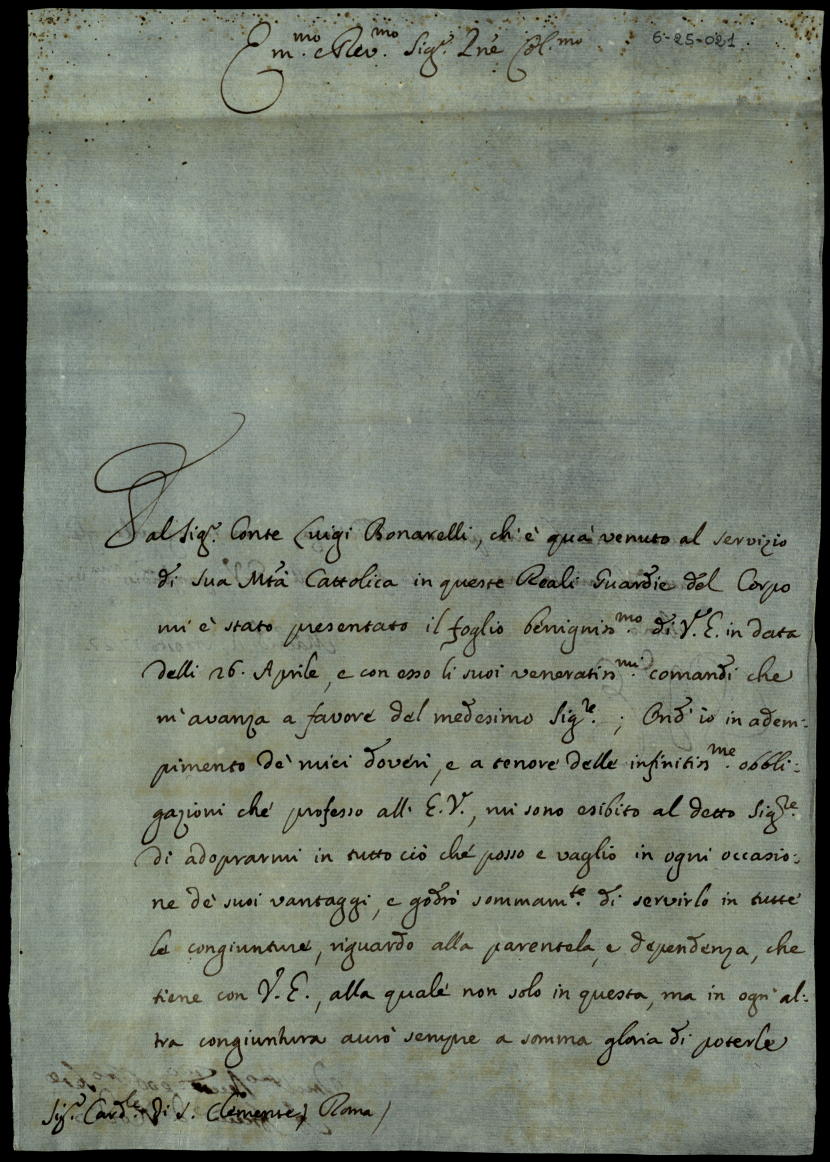 Em.mo e Rev.mo Sig.r Pne Col.mo
6-25-021
Dal Sig.r Conte Luigi Bonarelli, ch'è quà venuto al servizio
di sua Mtà Cattolica in queste Reali Guardie del Corpo
mi è stato presentato il foglio benigniss.mo di V.E. in data
delli 26. Aprile, e con esso li suoi veneratiss.mi comandi che
m'avanza a favore del medesimo Sig.re; Ond' io in adem:
pimento de' miei doveri, e a tenore delle infinitiss.me obbli:
gazioni che professo all' E.V., mi sono esibito al detto Sig.re
di adoprarmi in tutto ciò che posso e vaglio in ogni occasio:
ne de' suoi vantaggi, e godrò sommam.te di servirlo in tutte
le congiunture, riguardo alla parentela, e dependenza, che
tiene con V.E., alla quale non solo in questa, ma in ogn' al:
tra congiuntura avrò sempre a somma gloria di poterle
Sig.r Card.le di S. Clemente) Roma)